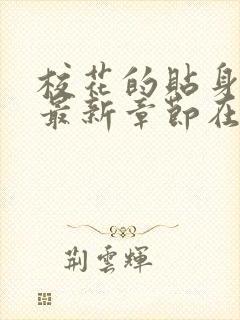 校花的貼身
最新章節在
荆雲輝